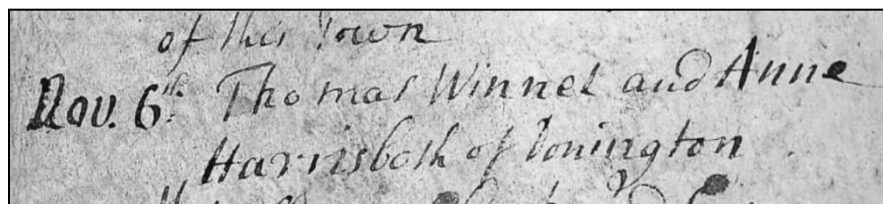 of this Town
Nov. 6th. Thomas Winnel and Anne
Harris both of Donington